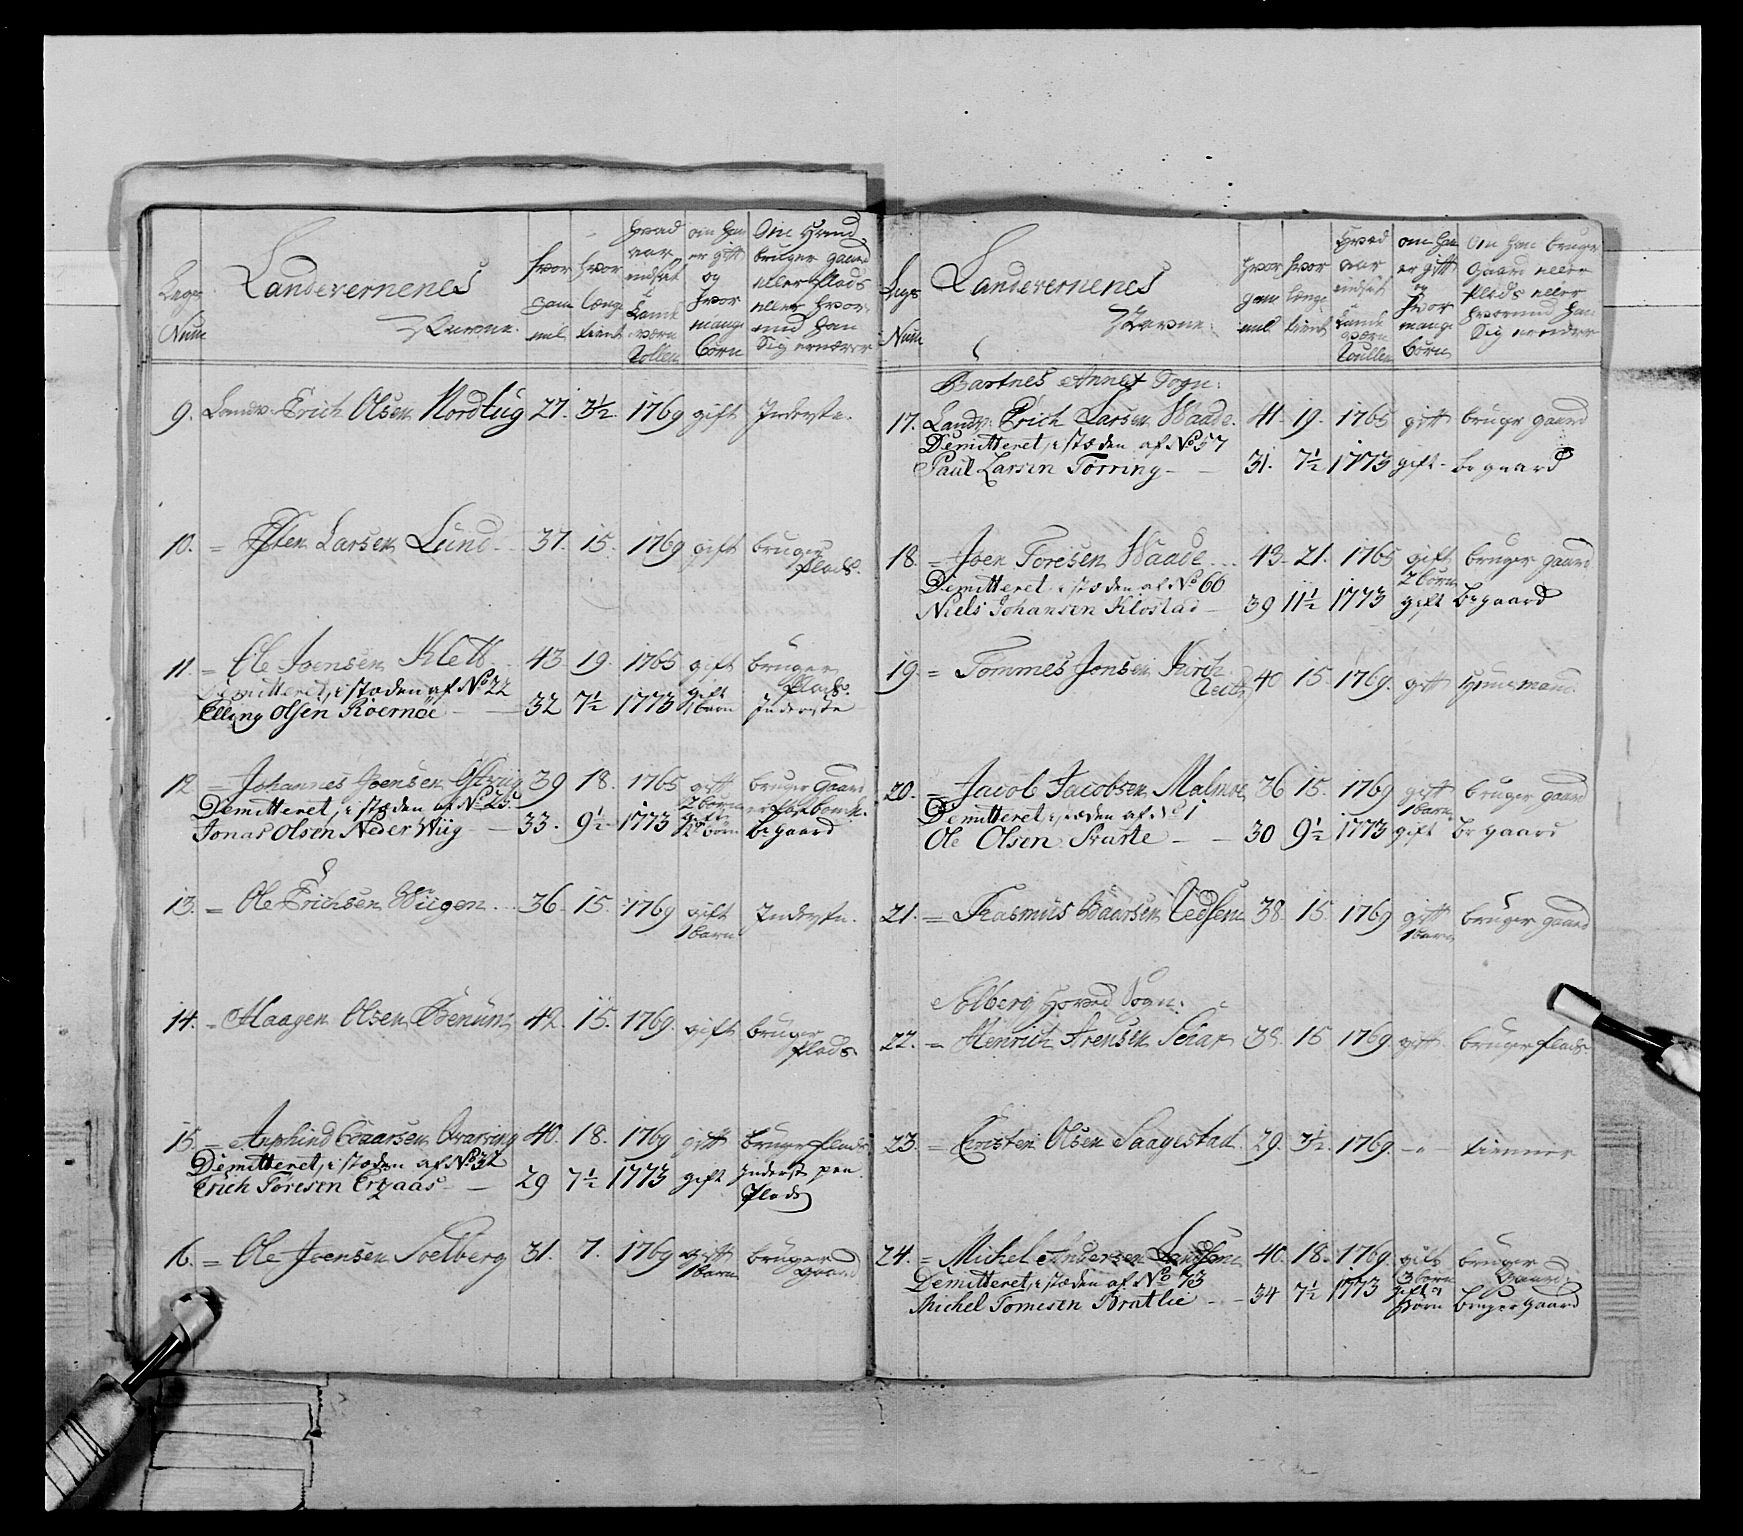 Legs Num
Landevernenes Navne.
hvor gam̄el
hvor længe tient
hvad aar indsat i Lande værn Rollen
om han er gift og hvor mange Børn
Om Hand bruger gaard eller Plads eller hvor med han Sig ernærer
9. Landv. Erich Olsen Nordlug 27. 3½. 1769 gift Inderste.
10. = Larsen Lund 37. 15. 1769 gift bruger
Plads.
11. = Ole Joensen Klett 43 19. 1765 gift bruger
Plads.
Demitteret, i stæden af No 22
Elling Olsen Roernöe 32 7½ 1773 gift 1 barn Inderste
12 = Johannes Joensen 39 18. 1765 gift bruger gaard
2 børn
Demitteret, i stæden af No 25.
Jonas Olsen Neder Wiig 33. 9½ 1773 gift børn br gaard
13. = Ole Erichsen Wiigen 36 15. 1769 gift Inderste.
1 barn
14. = Haagen Olsen Benum 42. 15. 1769. gift bruger
Plads.
15. = Arnhind Baarsen Qvarving 40. 18. 1769 gift bruger Plads
Demitteret, i stæden af No 32
Erich Toresen 29 7½ 1773 gift Inderst paa
Plads
16. = Ole Joensen Soelberg 31. 7. 1769 gift bruger
1 barn gaard
Legs Num
Landevernenes Navne.
hvor gam̄el
hvor længe tient
Hvad aar indsat i Lande værn Roullen
om han er gift og hvor mange børn
Om han bruger Gaard eller Plads eller hvormed han Sig ernærer
Bartnes Annex Sogn:
17. Landv. Erich Larsen Waade. 41. 19. 1765 gift bruger gaard
Demitteret, i stæden af No 57
Paul Larsen Tørring 31. 7½ 1773 gift br gaard
18. = Joen Toresen Waade 43 21. 1765 gift bruger gaard
2 børn
Demitteret, i stæden af No 60
Niels Johansen Klostad 39 11½ 1773 gift br gaard
19. = Tommes Jonsen Kirch 40 15. 1769. gift Huusmand.
20. = Jacob Jacobsen Malmoe 36 15. 1769 gift bruger gaard
1 barn
Demitteret, i stæden af No 1
Ole Olsen Svarte 30 9½ 1773 gift br gaard
21. = Rasmus Baarsen 38. 15. 1769 gift bruger gaard
1 barn
Solberg Hoved Sogn:
22. = Henrich Arensen 38. 15. 1769. gift bruger Plads
23. = Olsen Saagestad 29. 3½. 1769. - " - tienner
24. = Michel Andersen 40. 18. 1769. gift bruger
3 børn Gaard.
Demitteret, i stæden af No 73
Michel Tomesen Bratlie 34 7½ 1773 gift børn bruger gaard